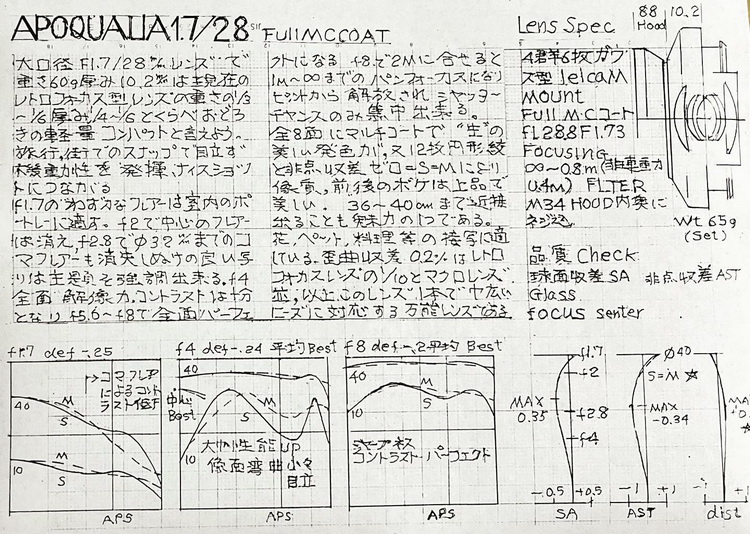 APOQUALIA1.7/28 SII FullMCCOAT
大口径F1.7/28㎜レンズで
重さ60g厚み10.2㎜は現在の
レトロフォーカス型レンズの重さの1/3
〜1/6厚み1/4〜1/6とくらべおどろ
きの軽量コンパクトと言えよう。
旅行、街でのスナップで目立ず
機動性を発揮、ナイスショッ
トにつながる
f1.7のわずかなフレアーは室内のポ
トレーに適す。f2で中心のフレアー
は消えf2.8でφ32㎜までのコ
マフレアーも消失しぬけの良い写
りは主題を強調出来る。f4
全面解像力、コントラストは十分
となりf5.6〜f8で全面パーフェ
クトになる f8で2Mに合せると
1M〜∞までのパンフォーカスになり
ピントから解放されシャッター
チャンスのみ集中出来る。
全8面にマルチコートで"生"の
美しい発色が、又12枚円形絞
と非点収差ゼロ=S=Mにより
像高、前後のボケは上品で
美しい。36〜40cmまで近接
出ることも魅力の1つである。
花、ペット、料理等の接写に適
している。歪曲収差0.2%はレトロ
フォーカスレンズの1/10とマクロレンズ
並、以上、このレンズ1本で巾広い
ニーズに対応する万能レンズである
Lens Spec
4群6枚ガウ
ス型 lelcaM
MOUNT
FULL M.Cコート
fL28.8 F1.73
FOCUSING
∞〜0.8m(非連動
0.4m) FLTER
M34 HOOD内奥に
ネジ込
88 10.2
Hood
Wt 65g
(Set)
品質Check
球面収差SA 非点収差AST
Glass
FOCUS senter
f1.7 def-.25
コマフレア
によるコント
ラスト低下
40
M
S
10
M
S
APS
f4 def-.24 平均Best
40
中心
Best
M
S
10
大物性能UP
像面湾曲小々
目立
APS
f8 def-.2平均Best
40
M
S
10
シャープネス
コントラスト・パーフェクト
APS
f1.7
f2
MAX
0.35
f2.8
f4
-0.5 +0.5
SA
φ40
S=M ☆
MAX
-0.34
-1 +1
AST
-1 +1
dist